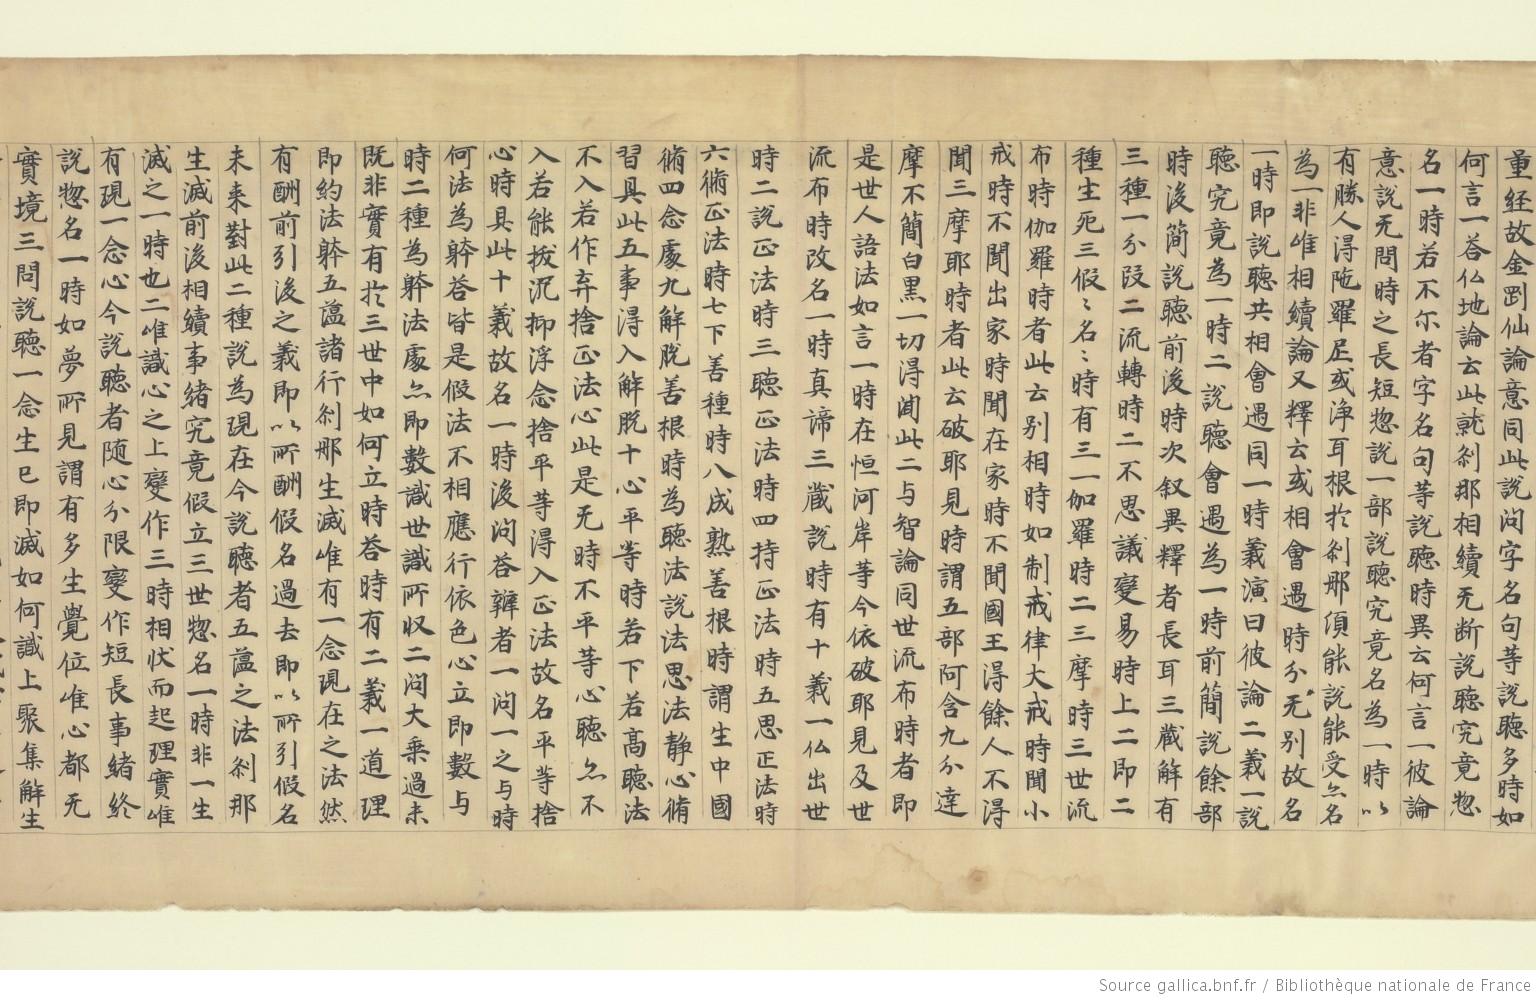 量経故金剛仙論意同此說问字名句等說聽多時如
何言一荅仏地論云此就刹那相續无断說聽究竟惣
名一時若不尓者字名句等說聽時異云何言一彼論
意說无問時之長短惣說一部說聽究竟名為一時以
有勝人得陁羅尼或浄耳根扵刹那頃能說能受亦名
為一非唯相續論又釋云或相會遇時分无別故名
一時即說聽共相會遇同一時義演曰彼論二義一說
聽究竟為一時二說聽會遇為一時前簡說餘部
時後簡說聽前後時次叙異釋者長耳三藏解有
三種一分段二流轉時二不思議變易時上二即二
種生死三假〻名〻時有三一加羅時二三摩時三世流
布時伽羅時者此云別相時如制戒律大戒時聞小
戒時不聞出家時聞在家時不聞國王得餘人不得
聞三摩耶時者此云破耶見時謂五部阿含九分達
摩不簡白黑一切得聞此二与智論同世流布時者即
是世人語法如言一時在恒河岸等今依破耶見及世
流布時改名一時真諦三藏說時有十義一仏出世
時二說正法時三聽正法時四持正法時五思正法時
六脩正法時七下善種時八成熟善根時謂生中國
脩四念處九解脫善根時為聽法說法思法静心脩
習具此五事得入解脫十心平等時若下若高聽法
不入若作弃捨正法心此是无時不平等心聽亦不
入若能拔沉抑浮念捨平等得入正法故名平等捨
心時具此十義故名一時後问荅辯者一问一之与時
何法為躰荅皆是假法不相應行依色心立即數与
時二種為躰法處亦即數識世識所収二问大乗過未
既非實有扵三世中如何立時荅時有二義一道理
即約法躰五薀諸行刹那生滅唯有一念現在之法然
有酬前引後之義即以所酬假名過去即以所引假名
未来對此二種說為現在今說聽者五薀之法刹那
生滅前後相續事緒究竟假立三世惣名一時非一生
滅之一時也二唯識心之上變作三時相状而起理實唯
有現一念心今說聽者随心分限變作短長事緒終
說惣名一時如夢所見謂有多生覺位唯心都无
實境三問說聽一念生已即滅如何識上聚集解生
Source gallica.bnf.fr / Bibliothèque nationale de France